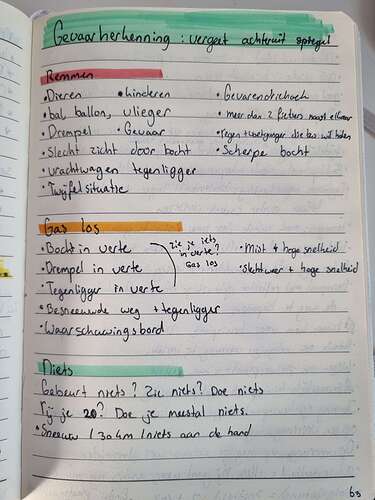 Gevaarherkenning : vergeet achteruit spiegel
Remmen
• Dieren • kinderen • Gevarendriehoek
• bal, ballon, vlieger • meer dan 2 fietsers naast elkaar
• Drempel • Gevaar • tegen
• Slecht zicht door bocht • Scherpe bocht
• vrachtwagen tegenligger
• Twijfelsituatie
Gas los
• Bocht in verte
• Drempel in verte
• Tegenligger in verte
zie je iets
in verte?
Gas los
• Mist + hoge snelheid
• slecht weer + hoge snelheid
• Besneeuwde weg + tegenligger
• Waarschuwingsbord
Niets
Gebeurt niets? Zie niets? Doe niets
Rij je 20? Doe je meestal niets.
• Sneeuw / 30 km / niets aan de hand
63